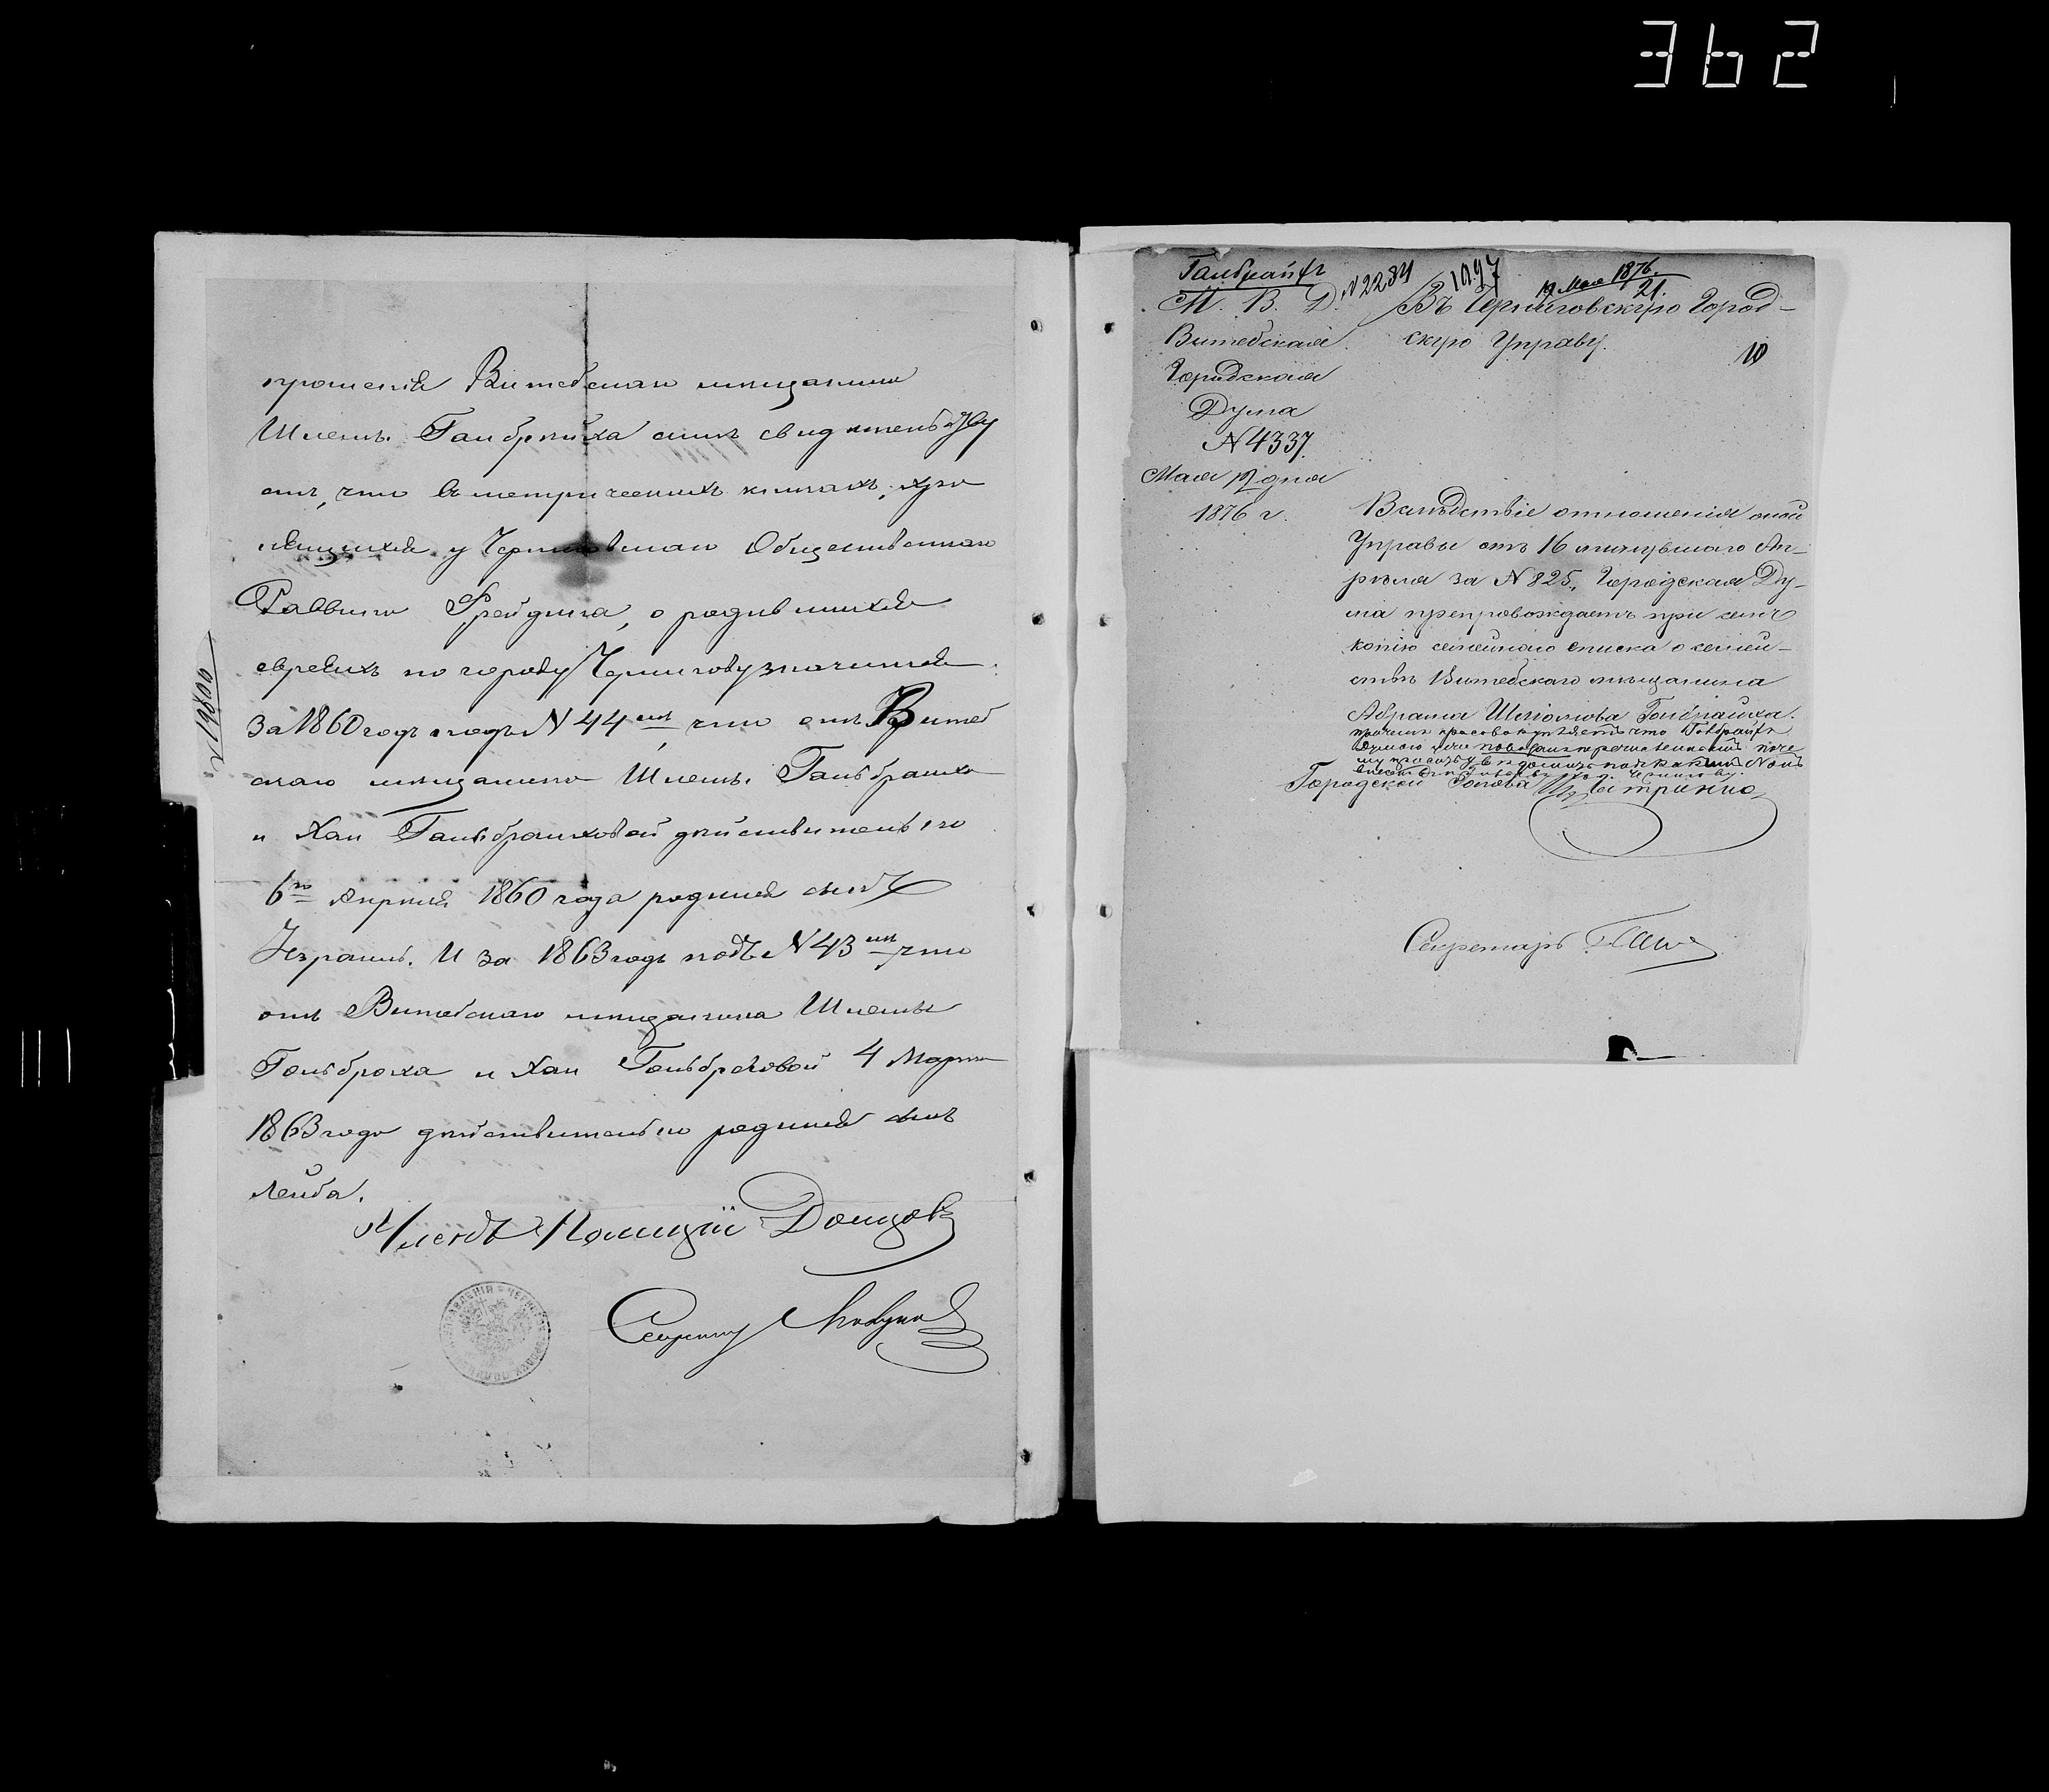 362
прошенія Витебскаго мещанина
Шлемы Гальбрайха симъ свидѣтельству
етъ, что въ метрическихъ книгахъ, хра
нящихся у Черниговскаго Общественнаго
Раввина Фрейдина, о родившихся
евреяхъ по городу Чернигову значится:
За 1860 годъ подъ N 44 емъ, что отъ Витеб
скаго мещанина Шлемы Гальбрайха
и Хаи Гальбрайховой действительно
6го Апреля 1860 года родился сынъ
Израиль. И за 1863 годъ подъ N 43 емъ что
отъ Витебскаго мещанина Шлемы
Гольбраха и Хаи Гольбраховой 4 Марта
1863 года действительно родился сынъ
Лейба.
Членъ Полиціи
Секретарь
N 19800
Гальбрайхъ
М. В. Д. N 2284
1097
19 Мая 1876.
21.
Витебская
Городская
Дума
N 4337.
Мая 12 дня
1876 г.
Въ Черниговскую Город-
скую Управу.
10
Вслѣдствіе отношенія оной
Управы отъ 16 минувшаго Ап-
рѣля за N 825, Городская Ду-
ма препровождаетъ при семъ
копію семейнаго списка о семей-
ствѣ Витебскаго мѣщанина
Абрама Шліомова Гольбрайха.
Городской Голова
Секретарь